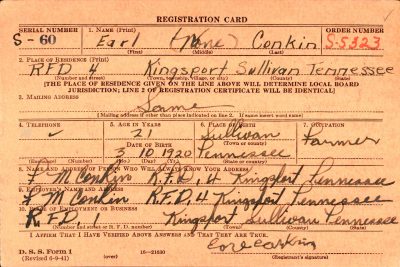 REGISTRATION CARD
SERIAL NUMBER 1. NAME (Print) ORDER NUMBER
S- 60 Earl (None) Conkin S-5323
(First) (Middle) (Last)
2. PLACE OF RESIDENCE (Print)
RFD 4 Kingsport Sullivan Tennessee
(Number and street) (Town, township, village, or city) (County) (State)
[THE PLACE OF RESIDENCE GIVEN ON THE LINE ABOVE WILL DETERMINE LOCAL BOARD
JURISDICTION; LINE 2 OF REGISTRATION CERTIFICATE WILL BE IDENTICAL]
3. MAILING ADDRESS
Same
(Mailing address if other than place indicated on line 2. If same insert word same)
4. TELEPHONE 5. AGE IN YEARS 6. PLACE OF BIRTH 7. OCCUPATION
21 Sullivan Farmer
DATE OF BIRTH (Town or county)
3 10 1920 Tennessee
(Exchange) (Number) (Mo.) (Day) (Yr.) (State or country)
8. NAME AND ADDRESS OF PERSON WHO WILL ALWAYS KNOW YOUR ADDRESS
M Conkin R.F.D. 4 Kingsport Tennessee
9. EMPLOYER'S NAME AND ADDRESS
M Conkin R.F.D. 4 Kingsport Tennessee
10. PLACE OF EMPLOYMENT OR BUSINESS
R.F.D. Kingsport Sullivan Tennessee
(Number and street or R. F. D. number) (Town) (County) (State)
I AFFIRM THAT I HAVE VERIFIED ABOVE ANSWERS AND THAT THEY ARE TRUE.
D. S. S. Form 1
(Revised 6-9-41) (over) 16—21630